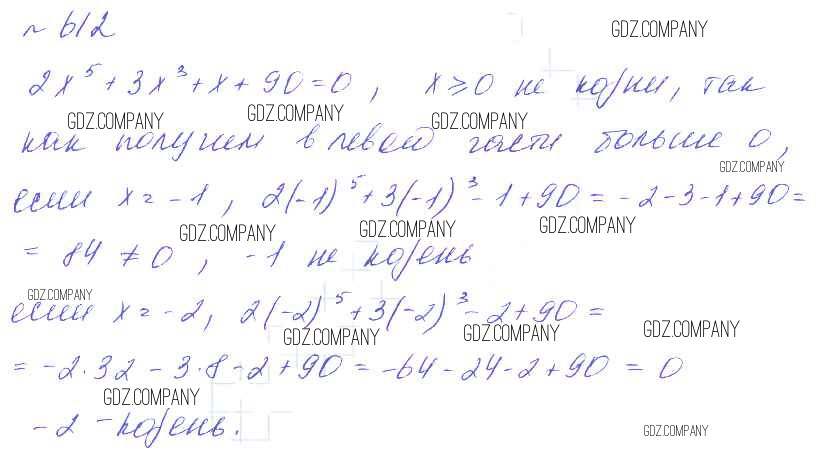 № 612
GDZ.COMPANY
2x⁵ + 3x³ + x + 90 = 0, x ≥ 0 не корни, так
GDZ.COMPANY GDZ.COMPANY GDZ.COMPANY
как получим в левой части больше 0,
GDZ.COMPANY
если x = -1, 2(-1)⁵ + 3(-1)³ - 1 + 90 = -2 - 3 - 1 + 90 =
GDZ.COMPANY GDZ.COMPANY GDZ.COMPANY
= 84 ≠ 0, -1 не корень
GDZ.COMPANY
если x = -2, 2(-2)⁵ + 3(-2)³ - 2 + 90 =
GDZ.COMPANY GDZ.COMPANY GDZ.COMPANY
= -2·32 - 3·8 - 2 + 90 = -64 - 24 - 2 + 90 = 0
GDZ.COMPANY
-2 - корень.
GDZ.COMPANY